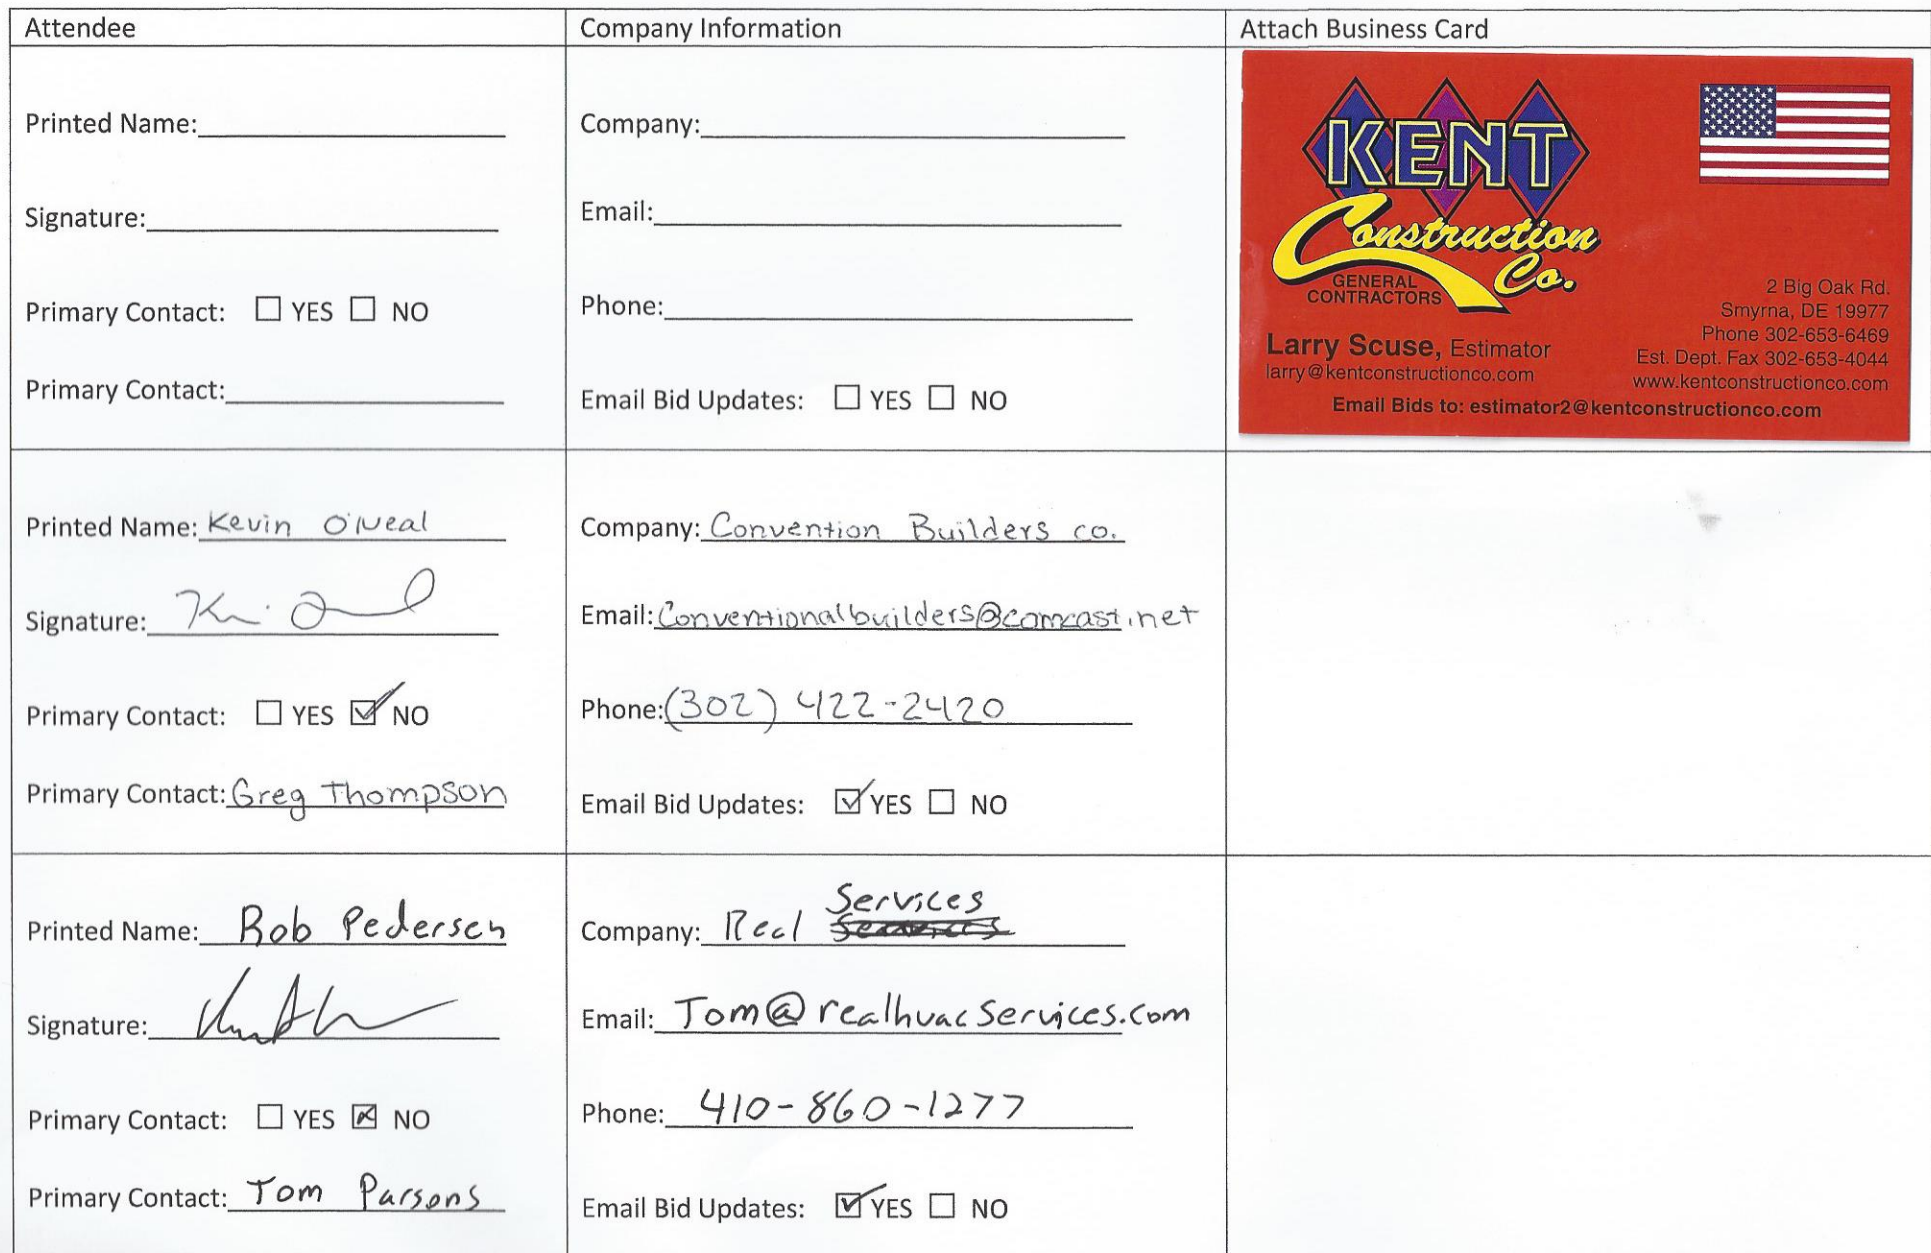 Attendee
Company Information
Attach Business Card
Printed Name:
Signature:
Primary Contact: ☐ YES ☐ NO
Primary Contact:
Company:
Email:
Phone:
Email Bid Updates: ☐ YES ☐ NO
KENT
Construction
Co.
GENERAL
CONTRACTORS
Larry Scuse, Estimator
larry@kentconstructionco.com
2 Big Oak Rd.
Smyrna, DE 19977
Phone 302-653-6469
Est. Dept. Fax 302-653-4044
www.kentconstructionco.com
Email Bids to: estimator2@kentconstructionco.com
Printed Name: Kevin O'Neal
Signature:
Primary Contact: ☐ YES ☑ NO
Primary Contact: Greg Thompson
Company: Convention Builders co.
Email: Conventionalbuilders@comcast.net
Phone: (302) 422-2420
Email Bid Updates: ☑ YES ☐ NO
Printed Name: Rob Pedersen
Signature:
Primary Contact: ☐ YES ☒ NO
Primary Contact: Tom Parsons
Company: Real Services
Email: Tom@realhvacServices.com
Phone: 410-860-1277
Email Bid Updates: ☑ YES ☐ NO